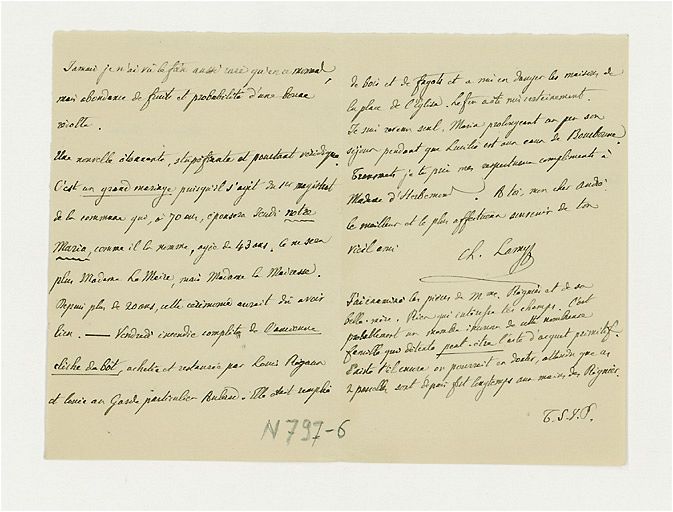 Jamais je n'ai vu le foin aussi rare qu'en ce moment,
mais abondance de fruits et probabilité d'une bonne
récolte.
Une nouvelle étonnante, stupéfiante et pourtant véridique.
C'est un grand mariage puisqu'il s'agit du 1er magistrat
de la commune qui, à 70 ans, épousera Jeudi notre
Maria, comme il la nomme, âgée de 43 ans. Ce ne sera
plus Madame Le Maire, mais Madame la Mairesse.
Depuis plus de 20 ans, cette cérémonie aurait dû avoir
lieu. — Vendredi incendie complet de l'ancienne
, achetée et restaurée par Louis
et louée au Garde particulier . Elle était remplie
de bois et de fagots et a mis en danger les maisons de
la place de l'Église. Le feu a été mis certainement.
Je suis revenu seul, Maria prolongeant un peu son
séjour pendant que Lucile est aux eaux de Bourbonne.
Transmets, je te prie, mes respectueux compliments à
Madame d'Herbemont. À toi, mon cher André,
le meilleur et le plus affectueux souvenir de ton
vieil ami
Ch. Lamy
J'ai examiné les pièces de Mme Régnier et de son
belle-mère. Rien qui intéresse les champs. C'est
probablement un membre de cette nombreuse
famille qui détient peut-être l'acte d'acquet primitif.
Existe-t-il encore on pourrait en douter, attendu que ces
2 parcelles sont depuis fort longtemps aux mains des Régnier.
T.S.V.P.
N 797-6